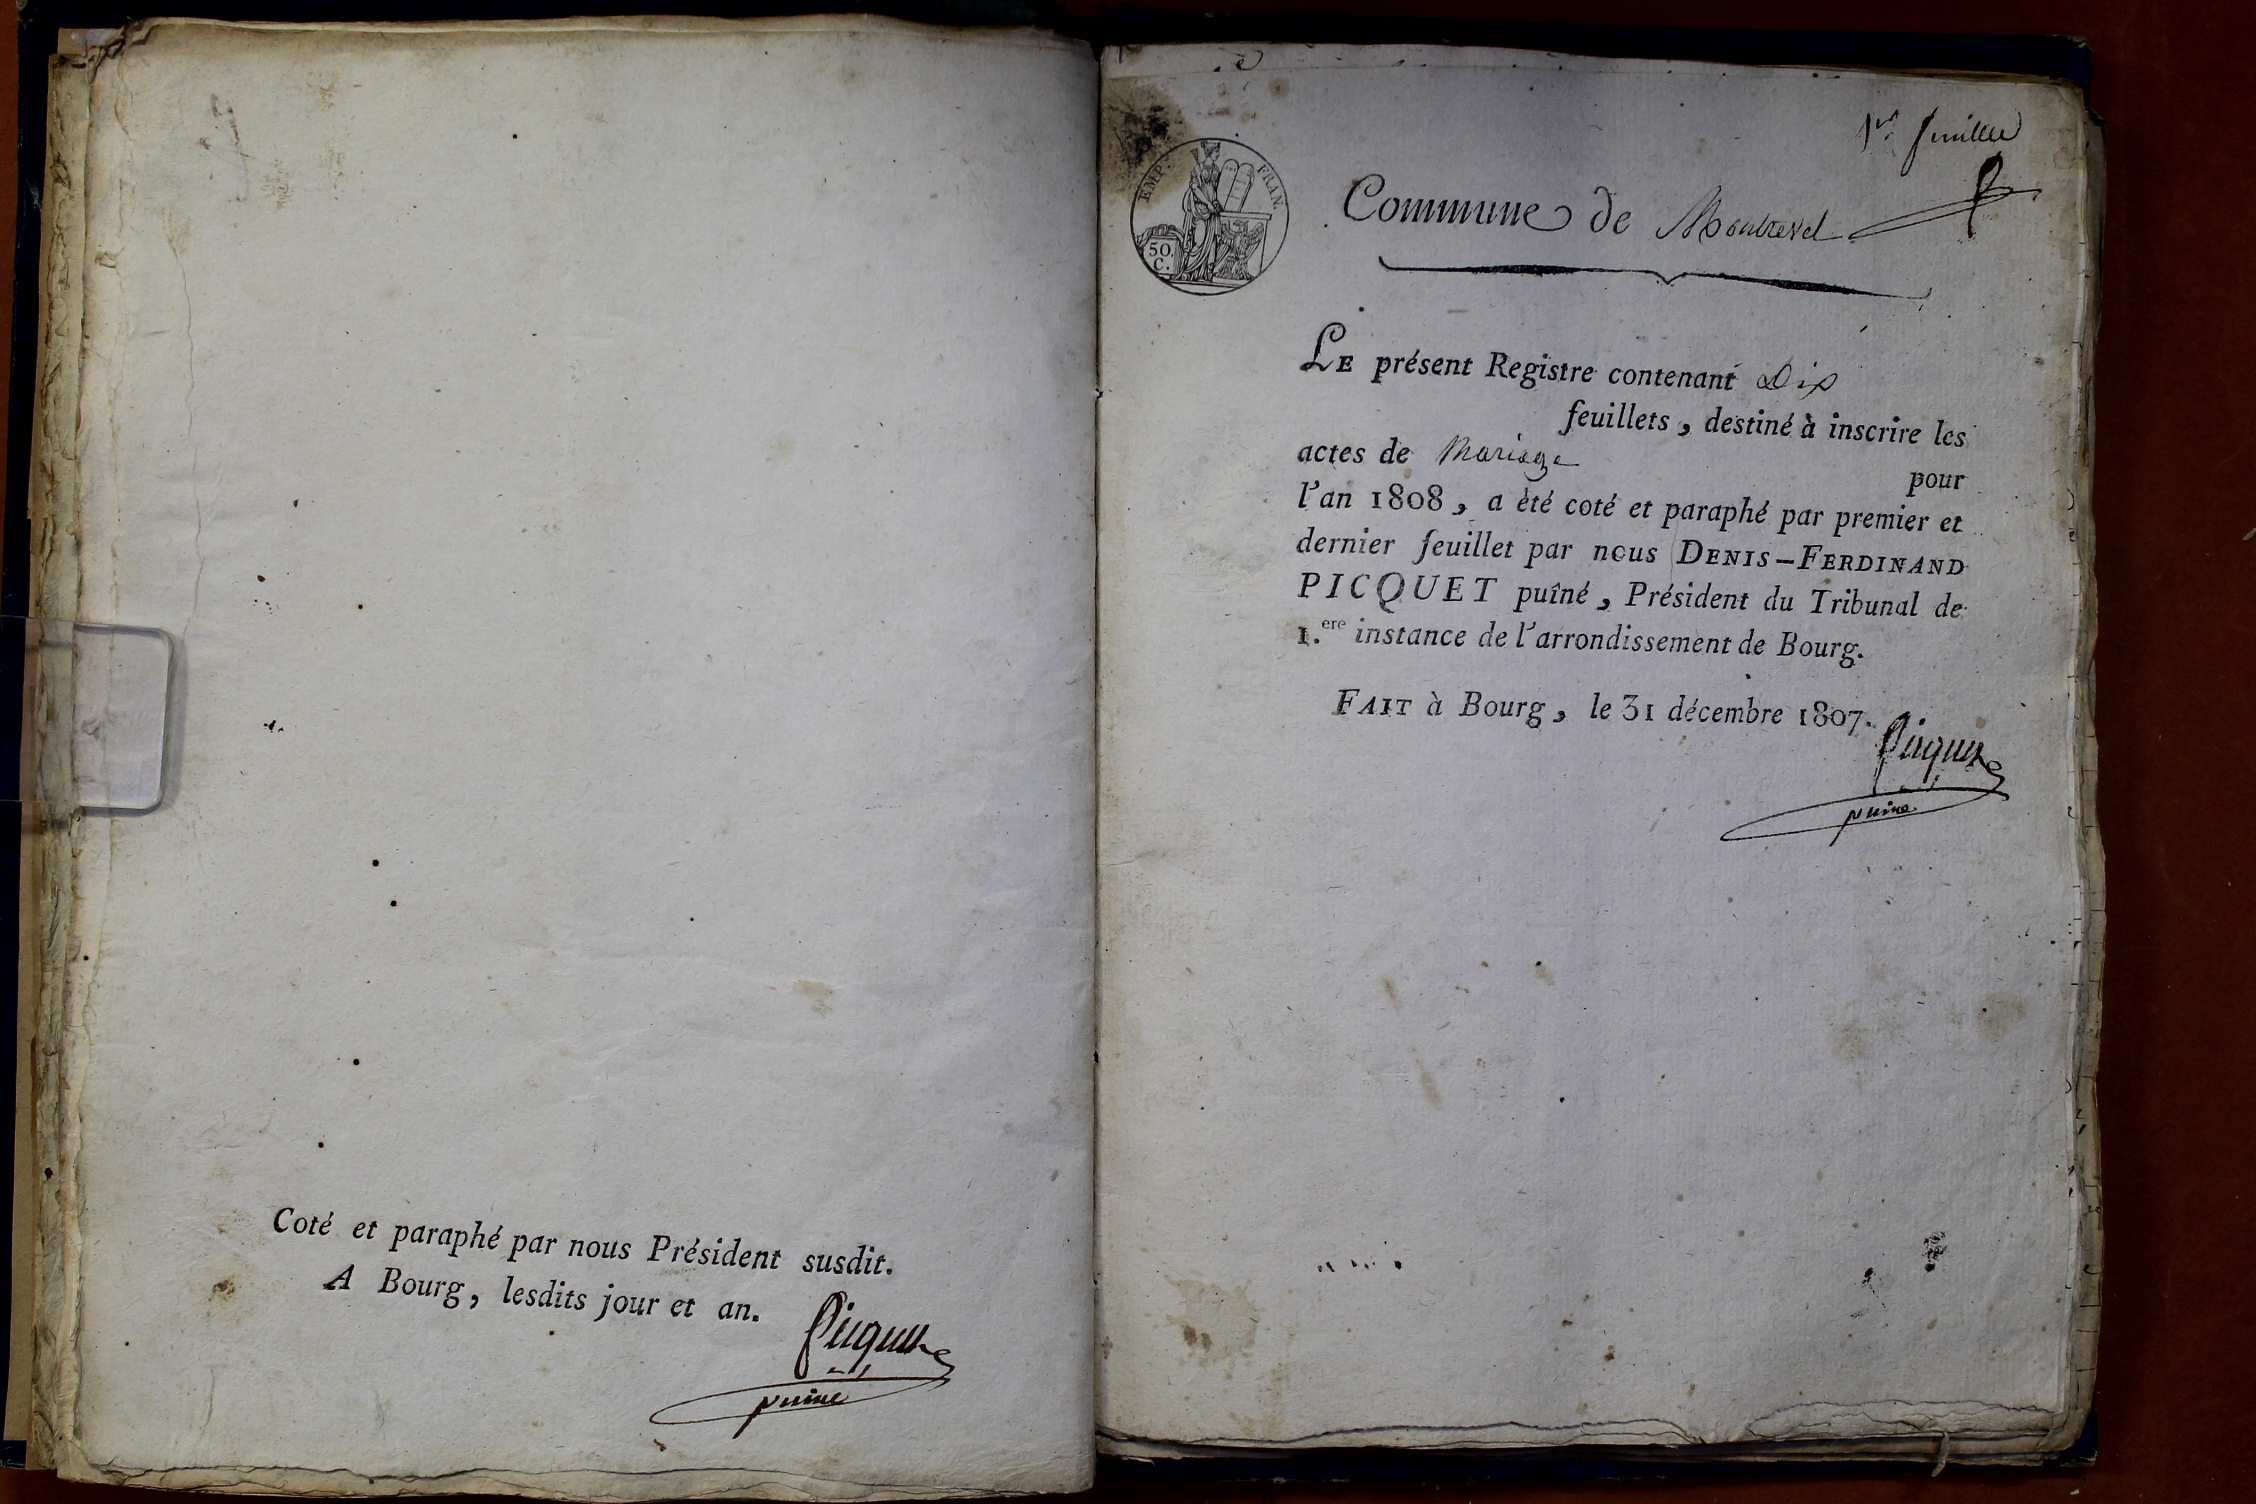 Coté et paraphé par nous Président susdit.
A Bourg, lesdits jour et an.
Picquet
puiné
1er feuillet
EMP. FRAN.
50.
C.
Commune de Montrevel
LE présent Registre contenant Dix
feuillets, destiné à inscrire les
actes de Mariage
pour
l'an 1808, a été coté et paraphé par premier et
dernier feuillet par nous DENIS-FERDINAND
PICQUET puîné, Président du Tribunal de
1.ere instance de l'arrondissement de Bourg.
FAIT à Bourg, le 31 décembre 1807.
Picquet
puiné